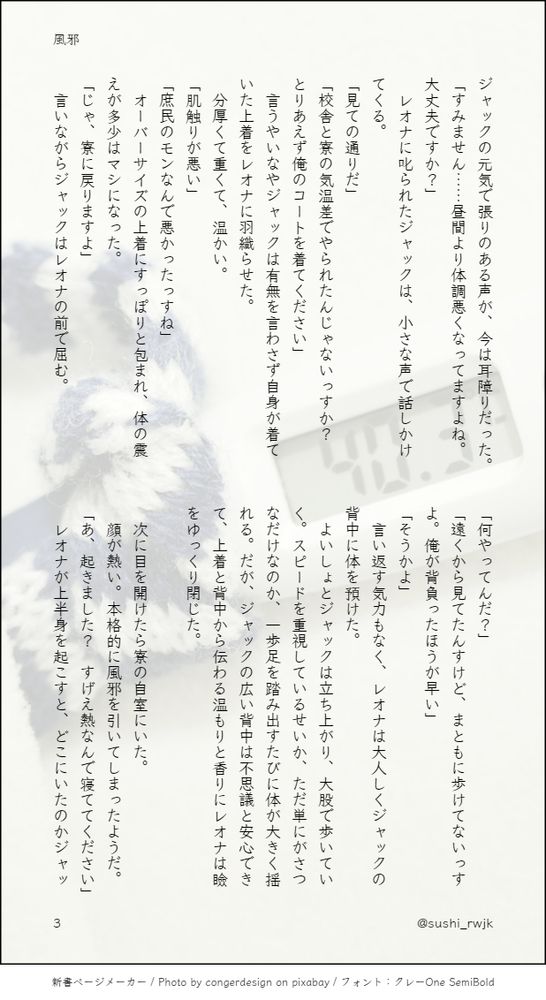 風邪
ジャックの元気で張りのある声が、今は耳障りだった。
「すみません……昼間より体調悪くなってますよね。
大丈夫ですか?」
レオナに叱られたジャックは、小さな声で話しかけ
てくる。
「見ての通りだ」
「校舎と寮の気温差でやられたんじゃないっすか?
とりあえず俺のコートを着てください」
言うやいなやジャックは有無を言わさず自身が着て
いた上着をレオナに羽織らせた。
分厚くて重くて、温かい。
「肌触りが悪い」
「庶民のモンなんで悪かったっすね」
オーバーサイズの上着にすっぽりと包まれ、体の震
えが多少はマシになった。
「じゃ、寮に戻りますよ」
言いながらジャックはレオナの前で屈む。
「何やってんだ?」
「遠くから見てたんすけど、まともに歩けてないっす
よ。俺が背負ったほうが早い」
「そうかよ」
言い返す気力もなく、レオナは大人しくジャックの
背中に体を預けた。
よいしょとジャックは立ち上がり、大股で歩いてい
く。スピードを重視しているせいか、ただ単にがさつ
なだけなのか、一歩足を踏み出すたびに体が大きく揺
れる。だが、ジャックの広い背中は不思議と安心でき
て、上着と背中から伝わる温もりと香りにレオナは瞼
をゆっくり閉じた。
次に目を開けたら寮の自室にいた。
顔が熱い。本格的に風邪を引いてしまったようだ。
「あ、起きました? すげえ熱なんで寝ててください」
レオナが上半身を起こすと、どこにいたのかジャッ
3
@sushi_rwjk
新書ページメーカー / Photo by congerdesign on pixabay / フォント:クレーOne SemiBold